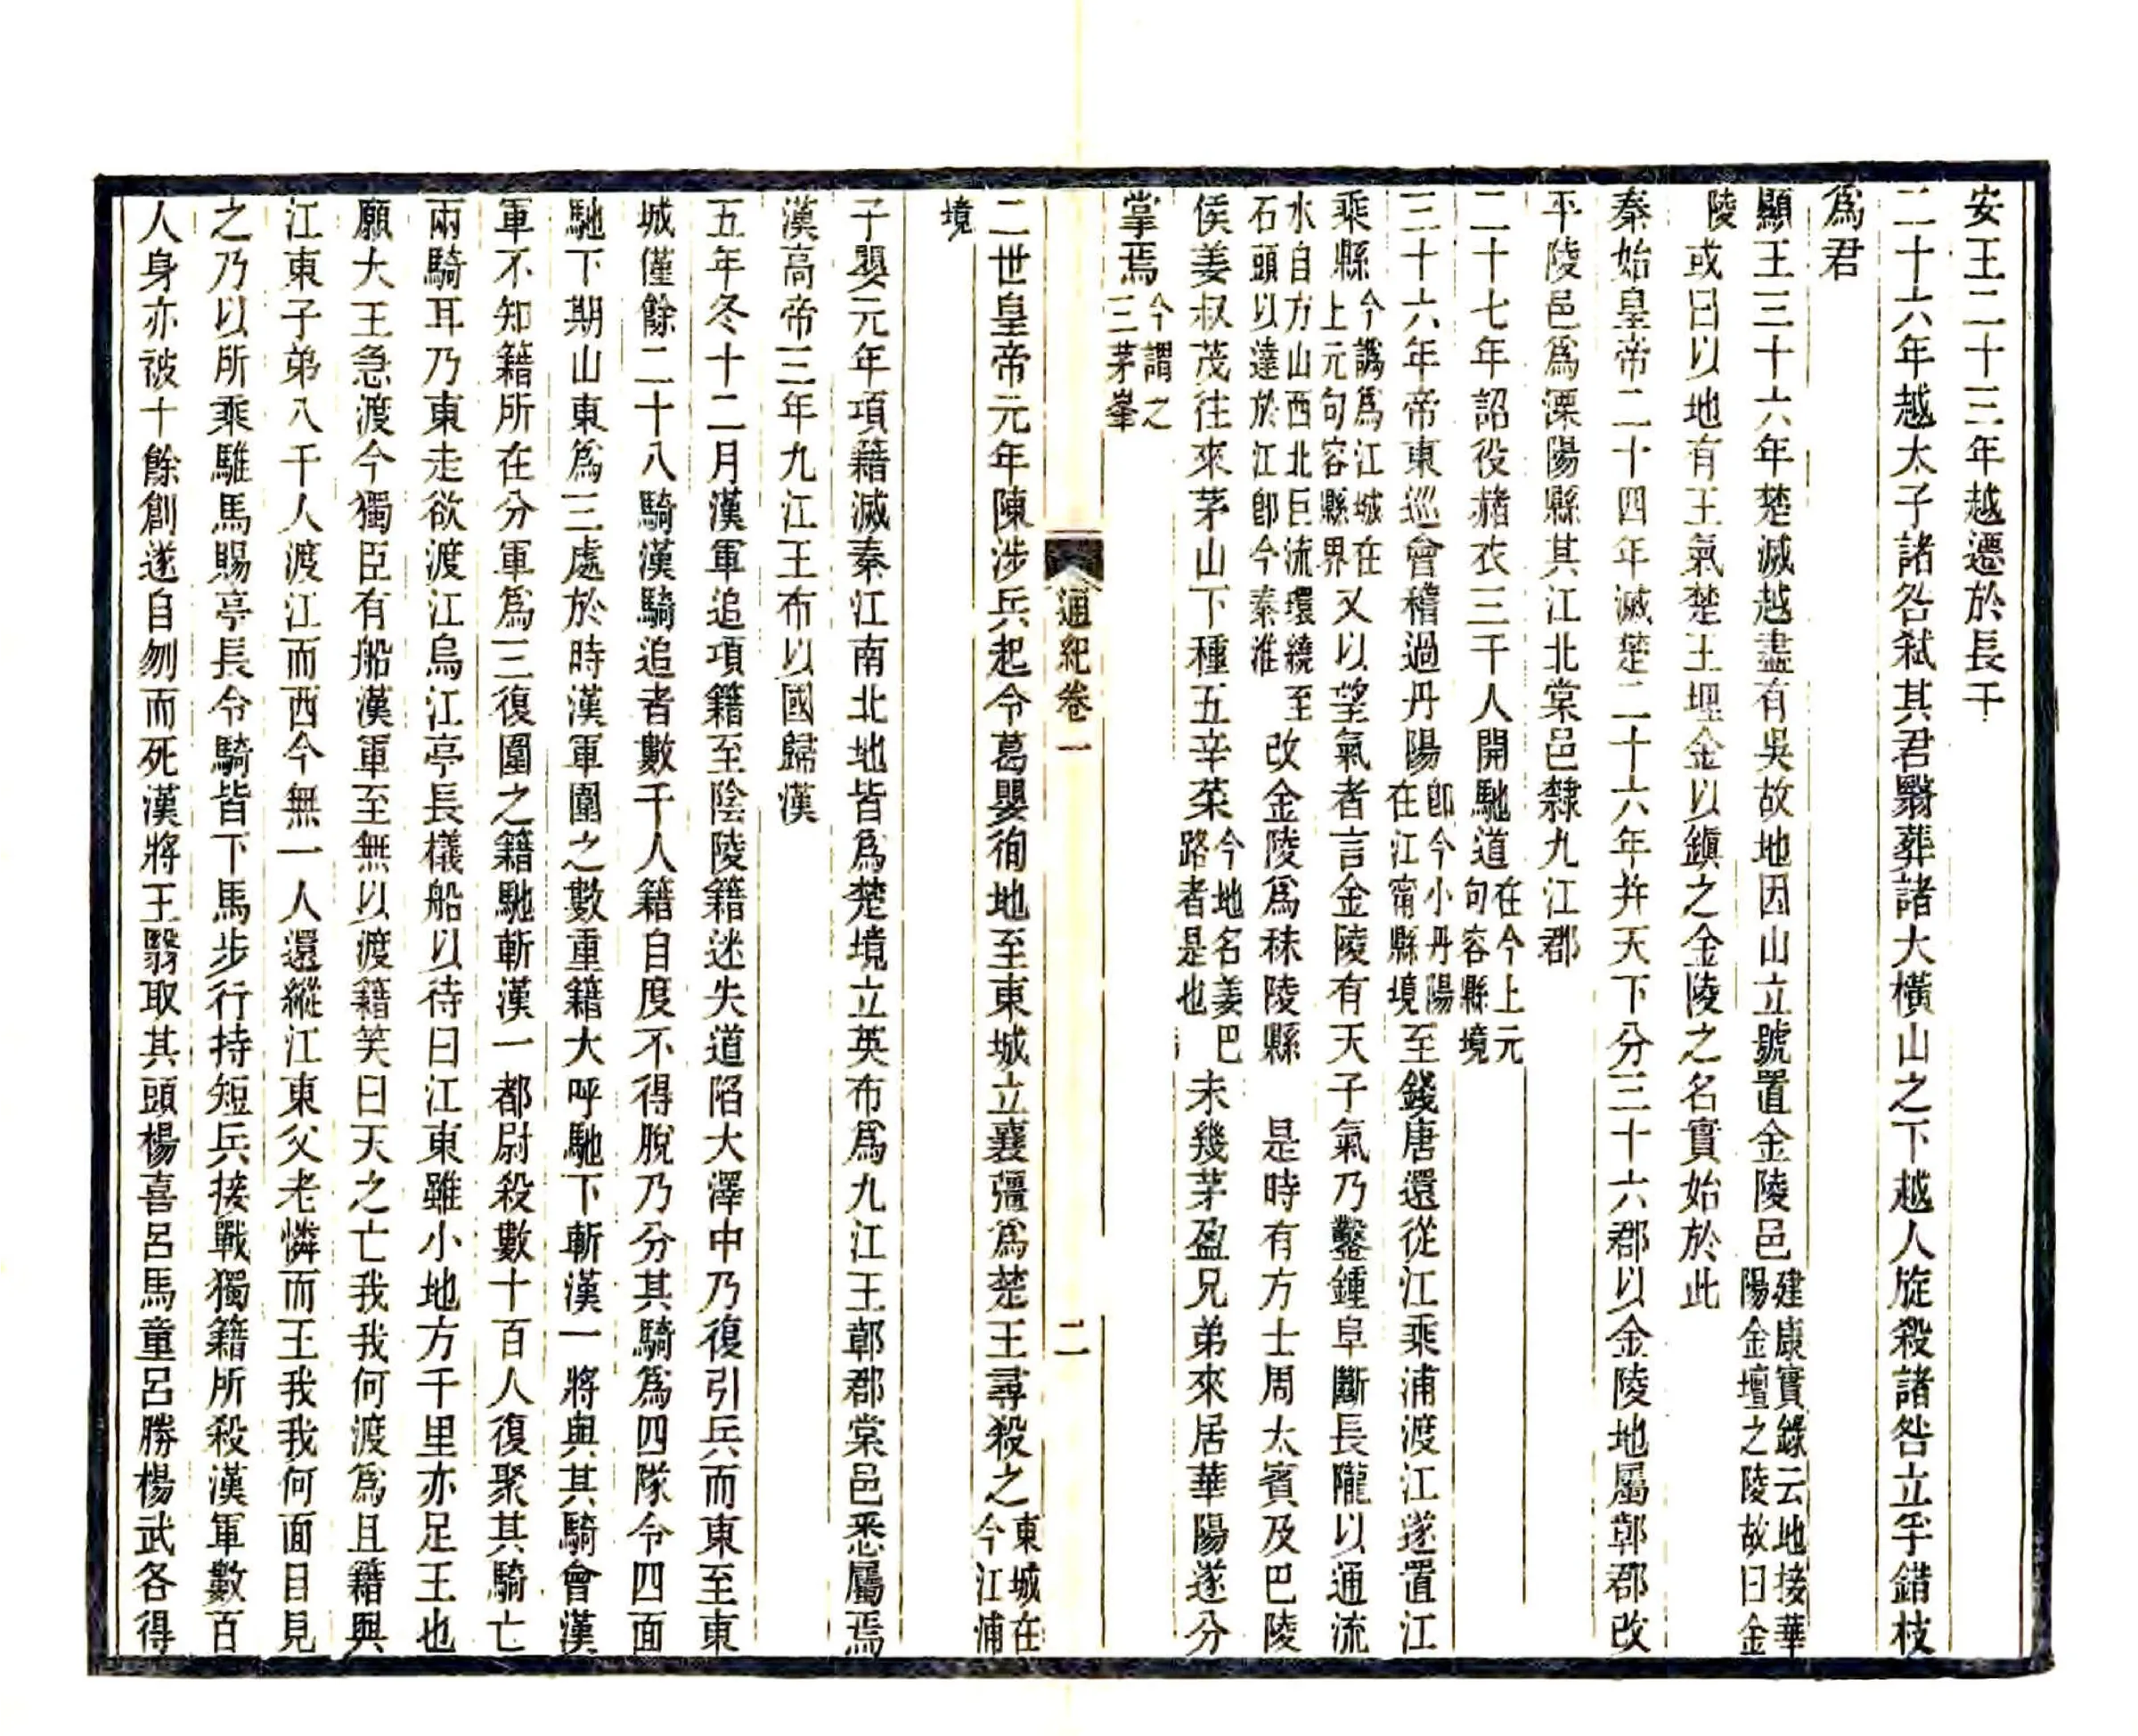 安王二十三年越遷於長干
二十六年越太子諸咎弒其君翳葬諸大橫山之下越人旋殺諸咎立孚錯枝
爲君
顯王三十六年楚滅越盡有吳故地因山立號置金陵邑建康實錄云地接華陽金壇之陵故曰金
陵或曰以地有王氣楚王埋金以鎮之金陵之名實始於此
秦始皇帝二十四年滅楚二十六年并天下分三十六郡以金陵地屬鄣郡改
平陵邑爲溧陽縣其江北棠邑隸九江郡
二十七年詔役赭衣三千人開馳道在今上元句容縣境
三十六年帝東巡會稽過丹陽卽今小丹陽在江甯縣境至錢唐還從江乘浦渡江遂置江
乘縣今譌爲江城在上元句容縣界又以望氣者言金陵有天子氣乃鑿鍾阜斷長隴以通流
水自方山西北巨流環繞至石頭以達於江卽今秦淮改金陵爲秣陵縣　是時有方士周太賓及巴陵
侯姜叔茂往來茅山下種五辛菜今地名姜巴路者是也未幾茅盈兄弟來居華陽遂分
掌焉今謂之三茅峯
通紀卷一
二
二世皇帝元年陳涉兵起令葛嬰徇地至東城立襄彊爲楚王尋殺之東城在今江浦
境
子嬰元年項籍滅秦江南北地皆爲楚境立英布爲九江王鄣郡棠邑悉屬焉
漢高帝三年九江王布以國歸漢
五年冬十二月漢軍追項籍至陰陵籍迷失道陷大澤中乃復引兵而東至東
城僅餘二十八騎漢騎追者數千人籍自度不得脫乃分其騎爲四隊令四面
馳下期山東爲三處於時漢軍圍之數重籍大呼馳下斬漢一將與其騎會漢
軍不知籍所在分軍爲三復圍之籍馳斬漢一都尉殺數十百人復聚其騎亡
兩騎耳乃東走欲渡江烏江亭長檥船以待曰江東雖小地方千里亦足王也
願大王急渡今獨臣有船漢軍至無以渡籍笑曰天之亡我我何渡爲且籍與
江東子弟八千人渡江而西今無一人還縱江東父老憐而王我我何面目見
之乃以所乘騅馬賜亭長令騎皆下馬步行持短兵接戰獨籍所殺漢軍數百
人身亦被十餘創遂自刎而死漢將王翳取其頭楊喜呂馬童呂勝楊武各得